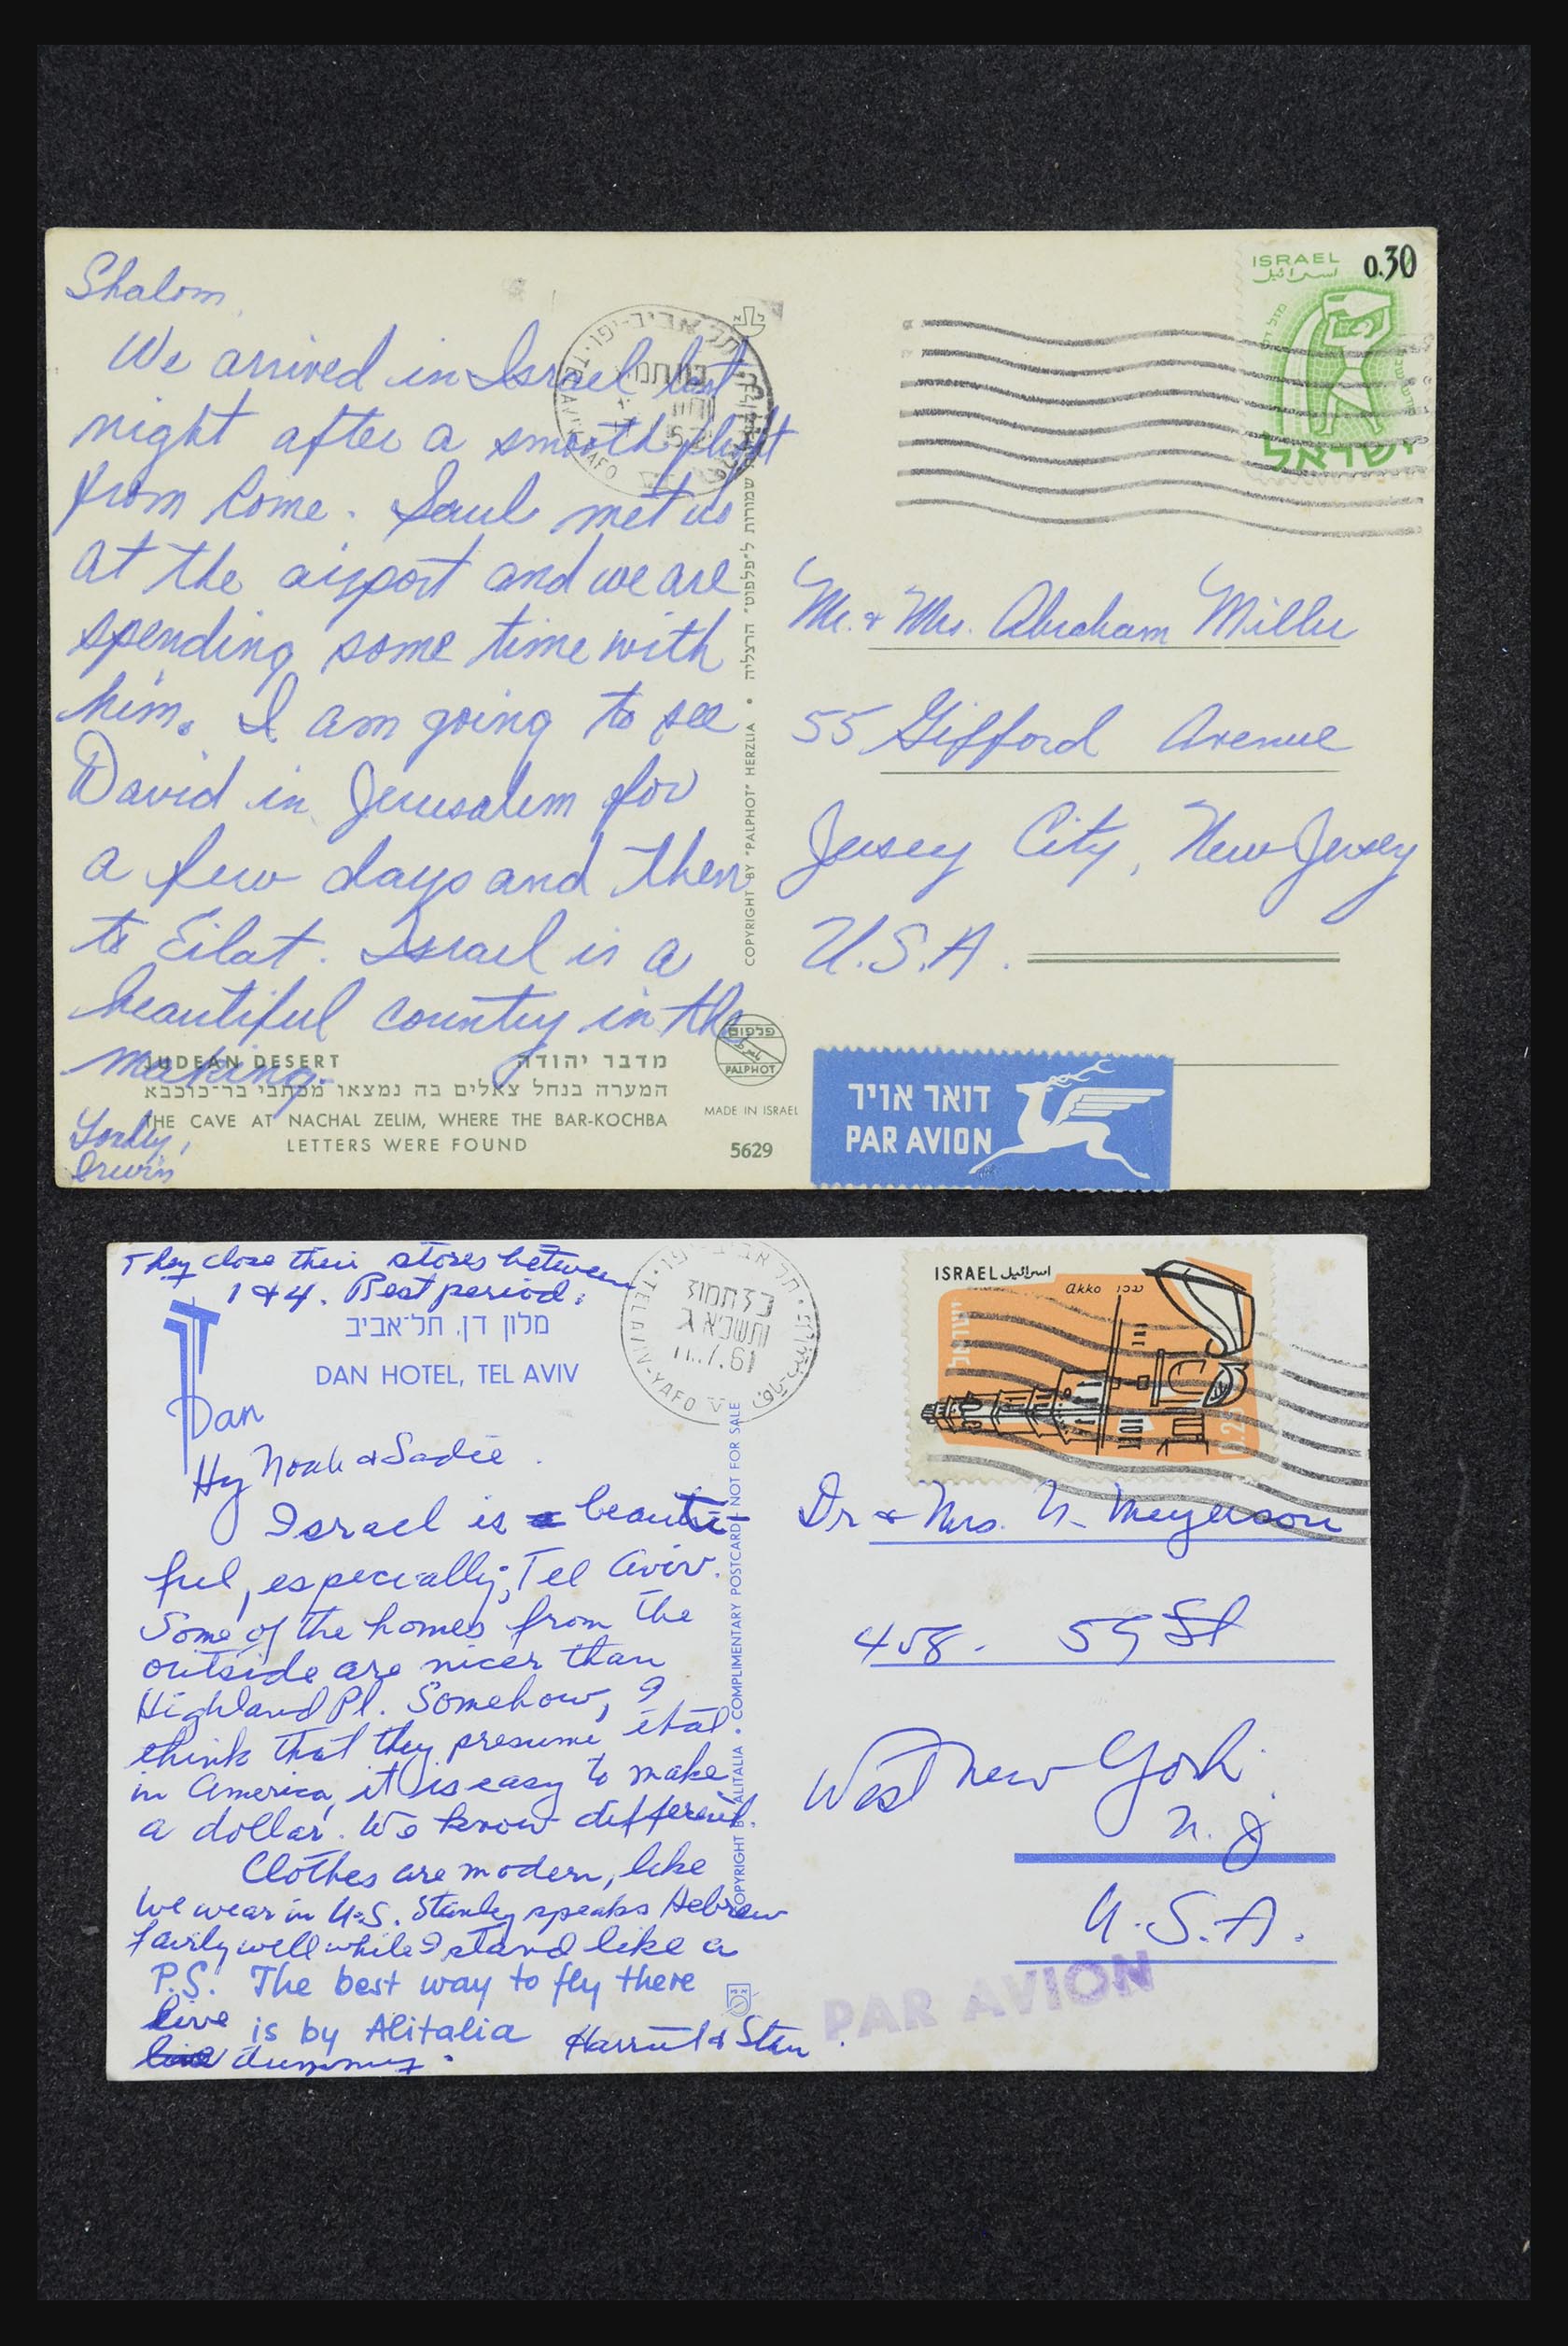 Shalom,
We arrived in Israel last
night after a smooth flight
from Rome. Saul met us
at the airport and we are
spending some time with
him. I am going to see
David in Jerusalem for
a few days and then
to Eilat. Israel is a
beautiful country in the
making.
Irwin
JUDEAN DESERT מדבר יהודה
המערה בנחל צאלים בה נמצאו מכתבי בר-כוכבא
THE CAVE AT NACHAL ZELIM, WHERE THE BAR-KOCHBA
LETTERS WERE FOUND
תל אביב-יפו
TEL AVIV-YAFO
COPYRIGHT BY "PALPHOT" HERZLIA • שמורות ל"פלפוט" הרצליה
פלפוט
PALPHOT
MADE IN ISRAEL
5629
ISRAEL 0.30
اسرائيل
ישראל
Mr. & Mrs. Abraham Miller
55 Gifford Avenue
Jersey City, New Jersey
U.S.A.
דואר אויר
PAR AVION
They close their stores between
1 & 4. Rest period.
מלון דן, תל-אביב
DAN HOTEL, TEL AVIV
Dan
Hy Noah & Sadie
Israel is beauti-
ful, especially, Tel Aviv.
Some of the homes from the
outside are nicer than
Highland Pl. Somehow, I
think that they presume that
in America, it is easy to make
a dollar. We know different.
Clothes are modern, like
we wear in U.S. Stanley speaks Hebrew
fairly well while I stand like a
P.S. The best way to fly there
live is by Alitalia Harriet & Stan
dummy.
TEL AVIV-YAFO
כז תמוז
תשכ"א
11.7.61
COPYRIGHT BY ALITALIA • COMPLIMENTARY POSTCARD - NOT FOR SALE
ISRAEL اسرائيل
akko עכו
ישראל
Dr & Mrs. N. Meyerson
458 - 59 St
West New York
N.J.
U.S.A.
PAR AVION